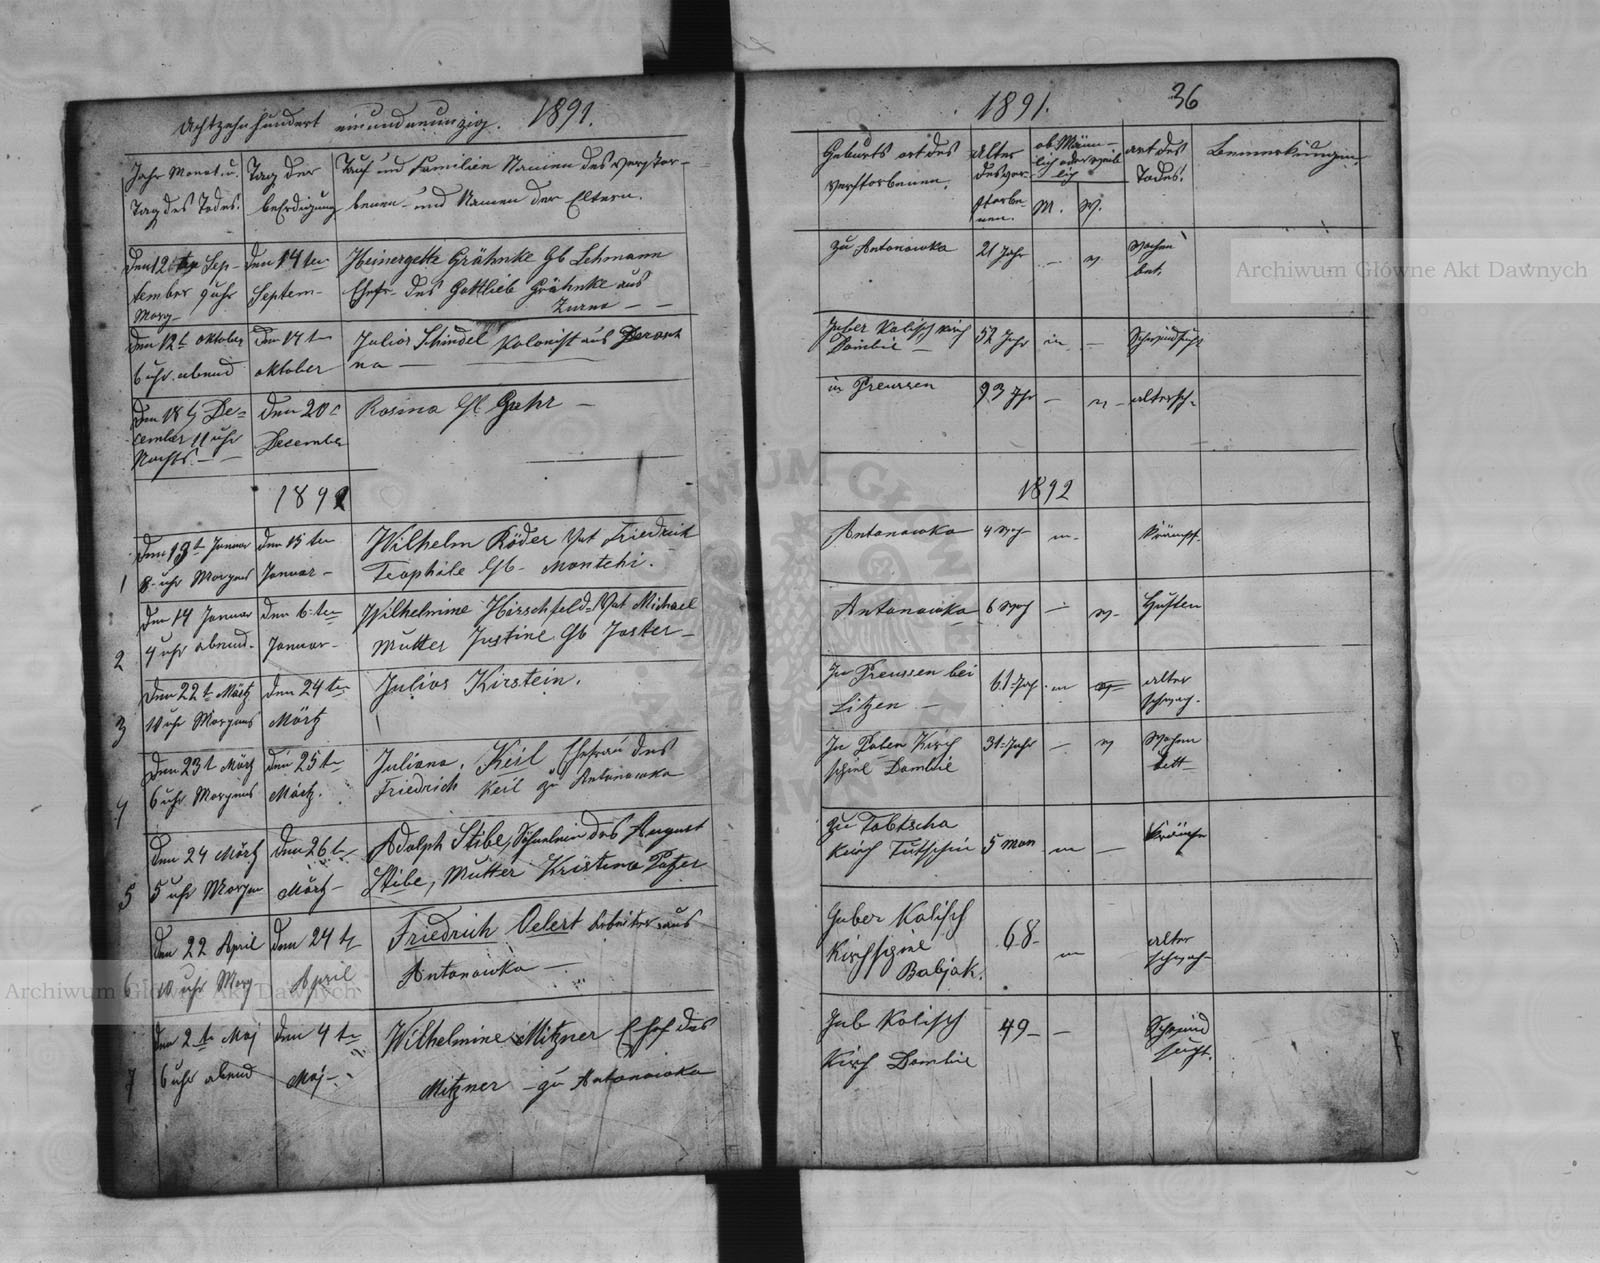 Achtzehnhundert einundneunzig. 1891.
Jahr Monat u. Tag des Todes.
Tag der beerdigung
Tauf und Familien Namen des Verstor-
benen und Namen der Eltern.
den 12 Sep-
tember 9 uhr
Morg-
den 14 ten
Septem-
Heinergette Grähnke Gb Lehmann
Ehefr. des Gottlieb Grähnke aus
den 12 t oktober
6 uhr abend
den 14 t
oktober
Julios Schindel Kolonist aus
na —
den 18 De-
cember 11 uhr
Nachts. —
den 20 t
Desember
Rosina Gb Gahr —
1892
1
den 13 t Januar
8 uhr Morgens
den 15 ten
Januar -
Wilhelm Röder Vat Friedrich
Teophile Gb- Montchi.
2
den 14 Januar
4 uhr abend.
den 6 ten
Januar-
Wilhelmine Hirschfeld Vat Michael
Mutter Justine Gb Jaster-
3
den 22 t Märtz
10 uhr Morgens
den 24 ten
Märtz
Julios Kirstein.
4
den 23 t Märtz
6 uhr Morgens
den 25 t
Märtz.
Juliana, Keil Ehefrau des
Friedrich Keil zu Antonowka
5
den 24 Märtz
5 uhr Morgen
den 26 t
Märtz-
Adolph Stibe, des August
Stibe, Mutter Kristina Patzer
6
den 22 April
10 uhr Morg
den 24 t
April
Friedrich Oelert Arbeiter aus
Antonowka —
7
den 2 t Maj
6 uhr abend
den 4 t
Maj -
Wilhelmine Mitzner Ehef des
Mitzner - zu Antonowka
1891.
36
Geburts ort des
verstorbenen.
alter
des ver-
storbe-
nen.
ob Männ-
lich oder weib
lich
M.
W.
art des
Todes.
Bemerkungen
zu Antonowka
21 Jahr
—
w
Wochen
bet.
Guber Kalisch Kirch
Dombie —
52 Jahr
m
—
Schwindsucht
in Preussen
93 Jahr
—
w -
altersch-
1892
Antonowka
4 Woch
m-
Krämpf.
Antonowka
6 Woch
—
w-
Husten
In Preussen bei
Litzen —
61 Jah
m
alter
schwach-
In Polen Kirch
spiel Dombie
31 Jahr
—
w
Wochen
bett
Zu Tabtscha
Kirch Tutschin
5 mon
m
—
Guber Kalisch
Kirchspiel
Babjak.
68-
m
alter
schwach-
Gub Kalisch
Kirch Dombie
49-
—
Schwind
sucht.
Archiwum Główne Akt Dawnych
Archiwum Główne Akt Dawnych